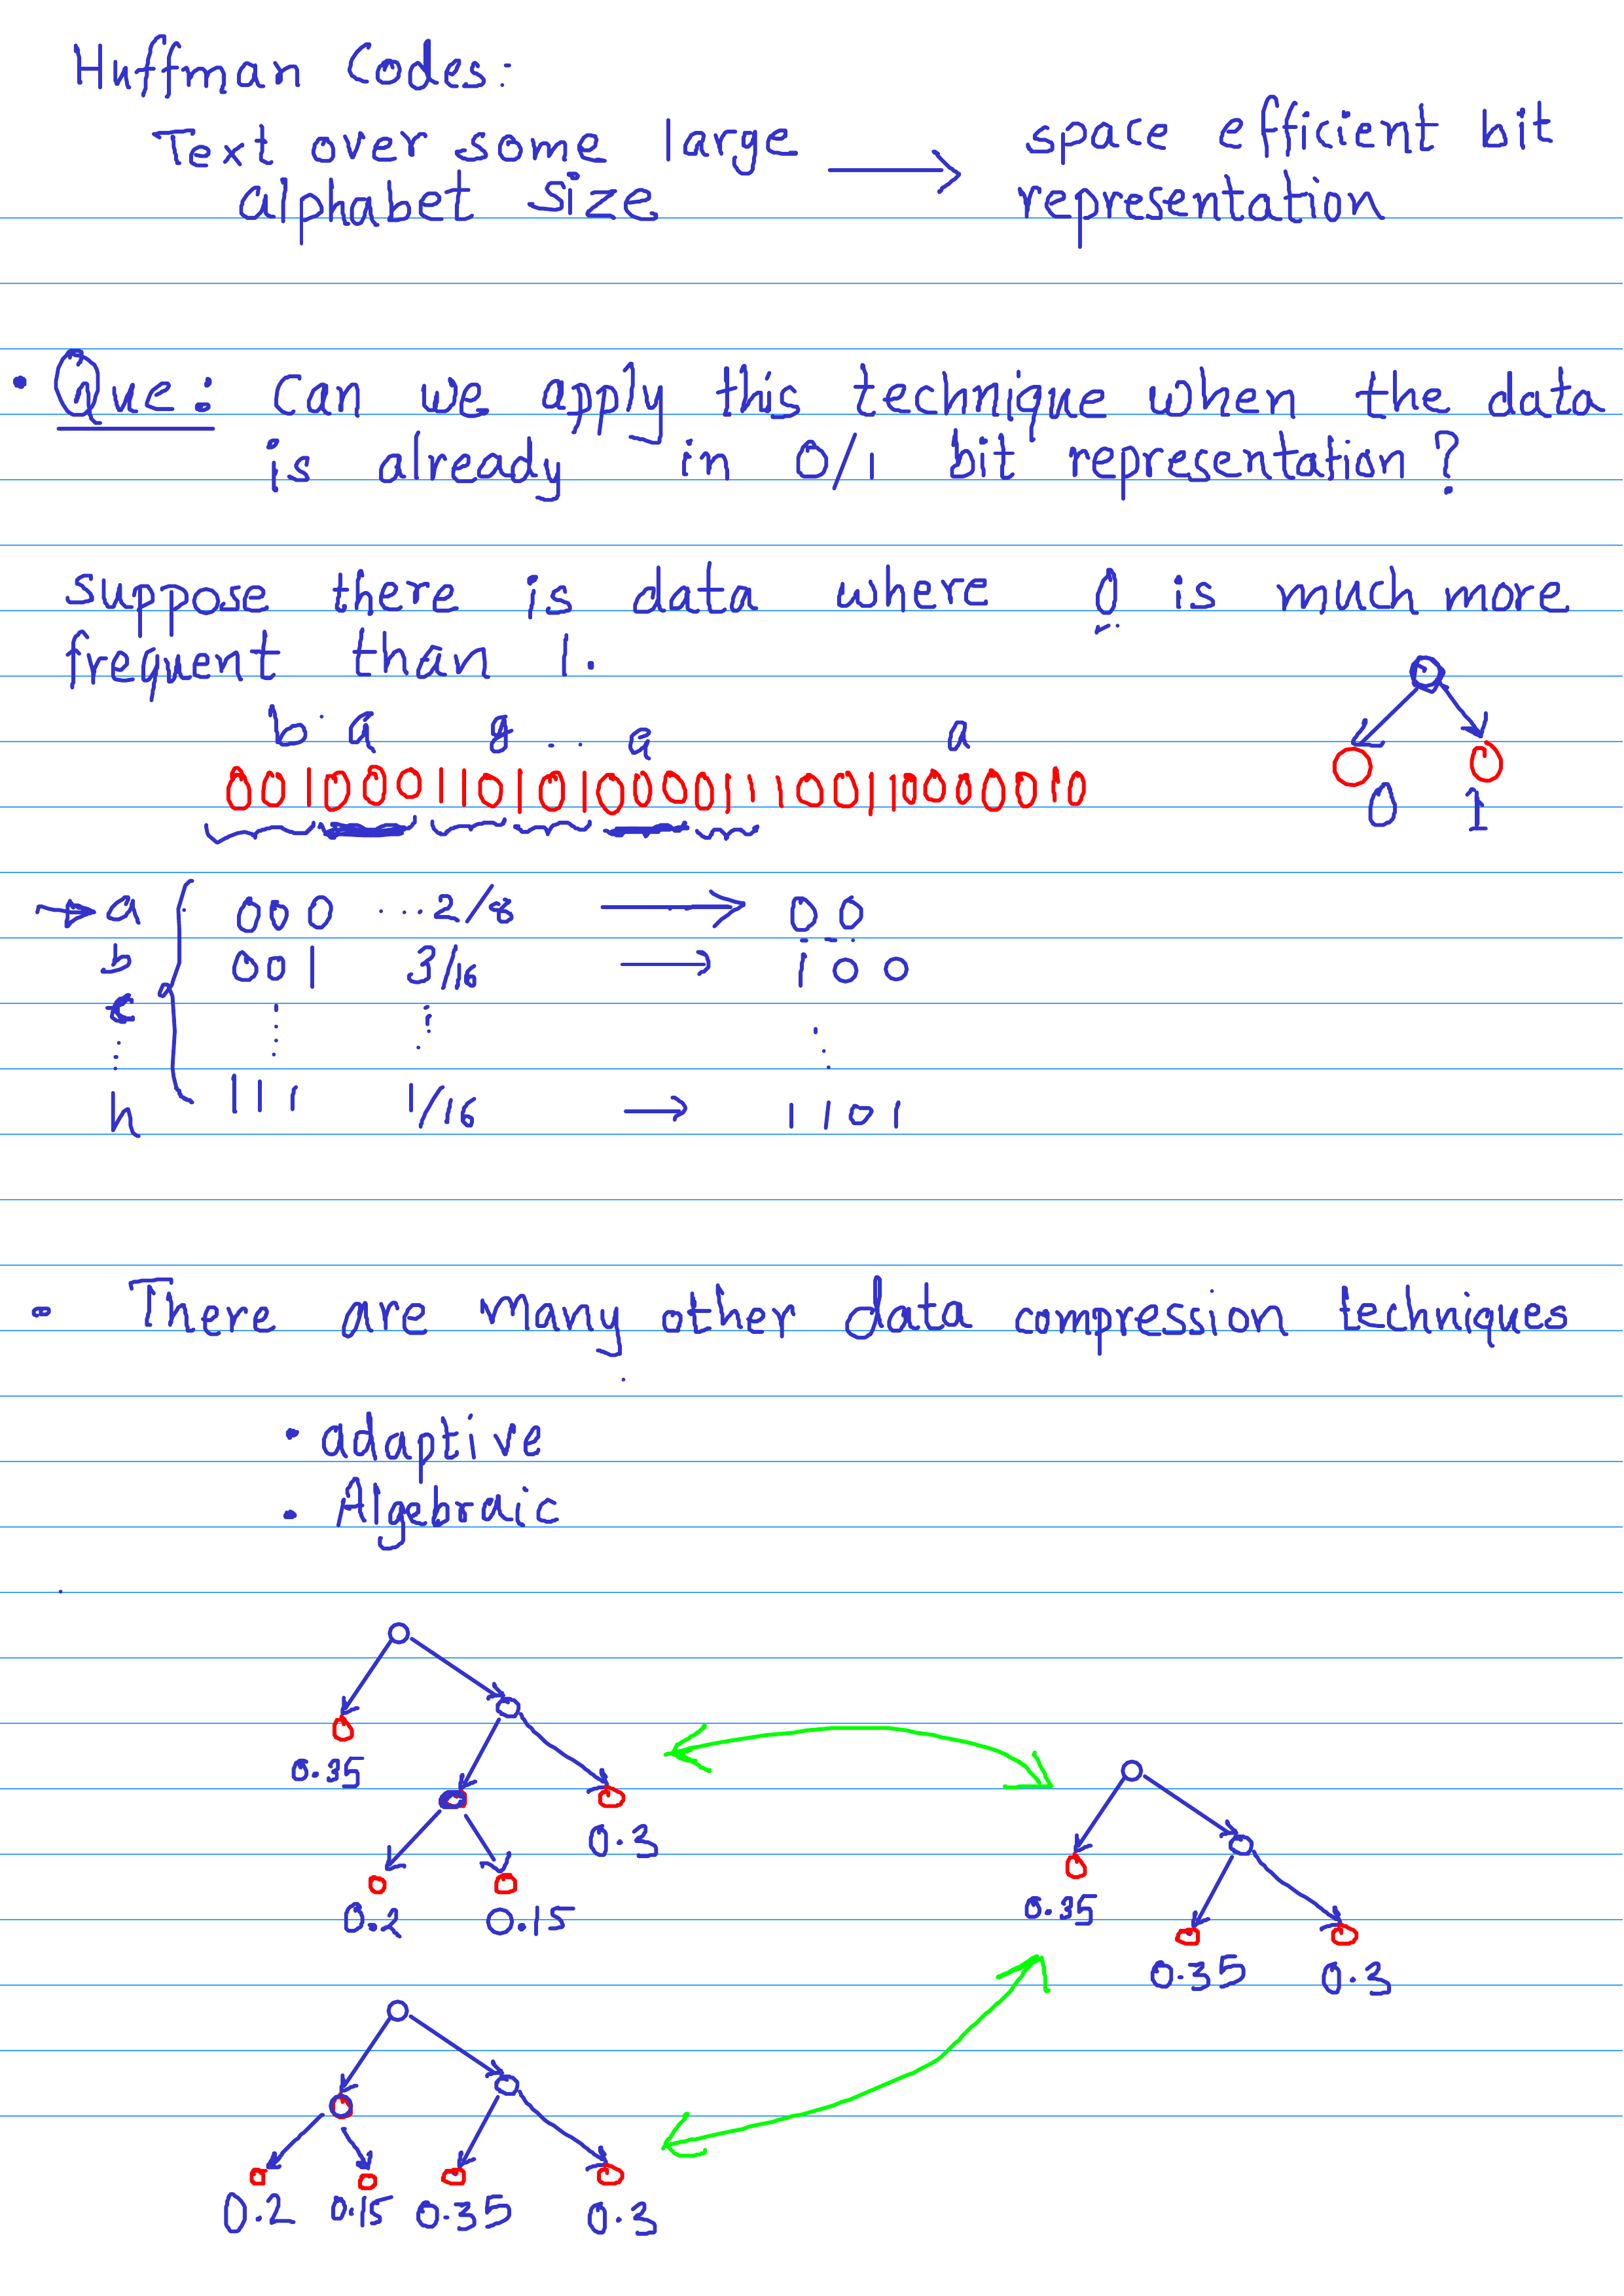 Huffman Codes:
Text over some large ⟶ space efficient bit
alphabet size representation
• Que: Can we apply this technique when the data
is already in 0/1 bit representation?
suppose there is data where 0 is much more
frequent than 1.
b a g .. a a
0 1
001000011010100001110011000010
a 000 ... 2/8 ⟶ 00
b 001 3/16 ⟶ 100
c
h 111 1/16 ⟶ 1101
- There are many other data compression techniques
• adaptive
• Algebraic
0.35
0.3
0.2 0.15
0.35
0.35 0.3
0.2 0.15 0.35 0.3